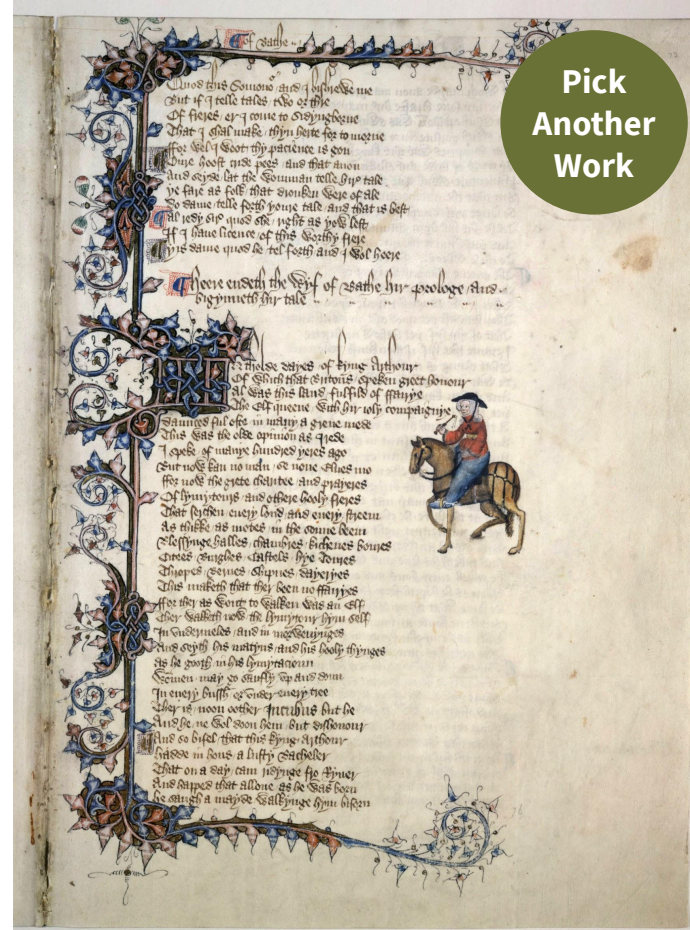 Of Bathe
Pick
Another
Work
Quod this Somono and I bishrewe me
But if I telle tales two or thre
Of freres er I come to Sidyngborne
That I shal make thyn herte for to morne
ffor wel I woot thy pacience is gon
Oure hoost cride pees and that anon
And seyde lat the womman telle hir tale
ye fare as folk that dronken were of ale
Do dame telle forth youre tale and that is best
Al redy sir quod she right as yow lest
If I have licence of this worthy frere
yis dame quod he tel forth and I wol heere
Heere endeth the Wyf of Bathe hir prologe and
bigynneth hir tale
In tholde dayes of kyng Arthour
Of which that Britons speken greet honour
Al was this land fulfild of ffairye
The Elf queene with hir ioly compaignye
daunced ful ofte in many a grene mede
This was the olde opinion as I rede
I speke of manye hundred yeres ago
But now kan no man se none Elves mo
ffor now the grete charitee and prayeres
Of lymytours and othere hooly freres
That serchen every lond and every streem
As thikke as motes in the sonne beem
Blessynge halles chambres kichenes boures
Citees Burghes Castels hye Toures
Thropes Bernes Shipnes dayeryes
This maketh that ther been no ffairyes
ffor ther as wont to walken was an Elf
Ther walketh now the lymytour hym self
In undermeles and in morwenynges
And seyth his matyns and his hooly thynges
As he gooth in his lymytacioun
Wommen may go saufly up and doun
In every bussh or under every tree
Ther is noon oother Incubus but he
And he ne wol doon hem but dishonour
And so bifel that this kyng Arthour
hadde in hous a lusty Bacheler
That on a day cam ridynge fro Ryver
And happed that allone as he was born
he saugh a mayde walkynge hym biforn